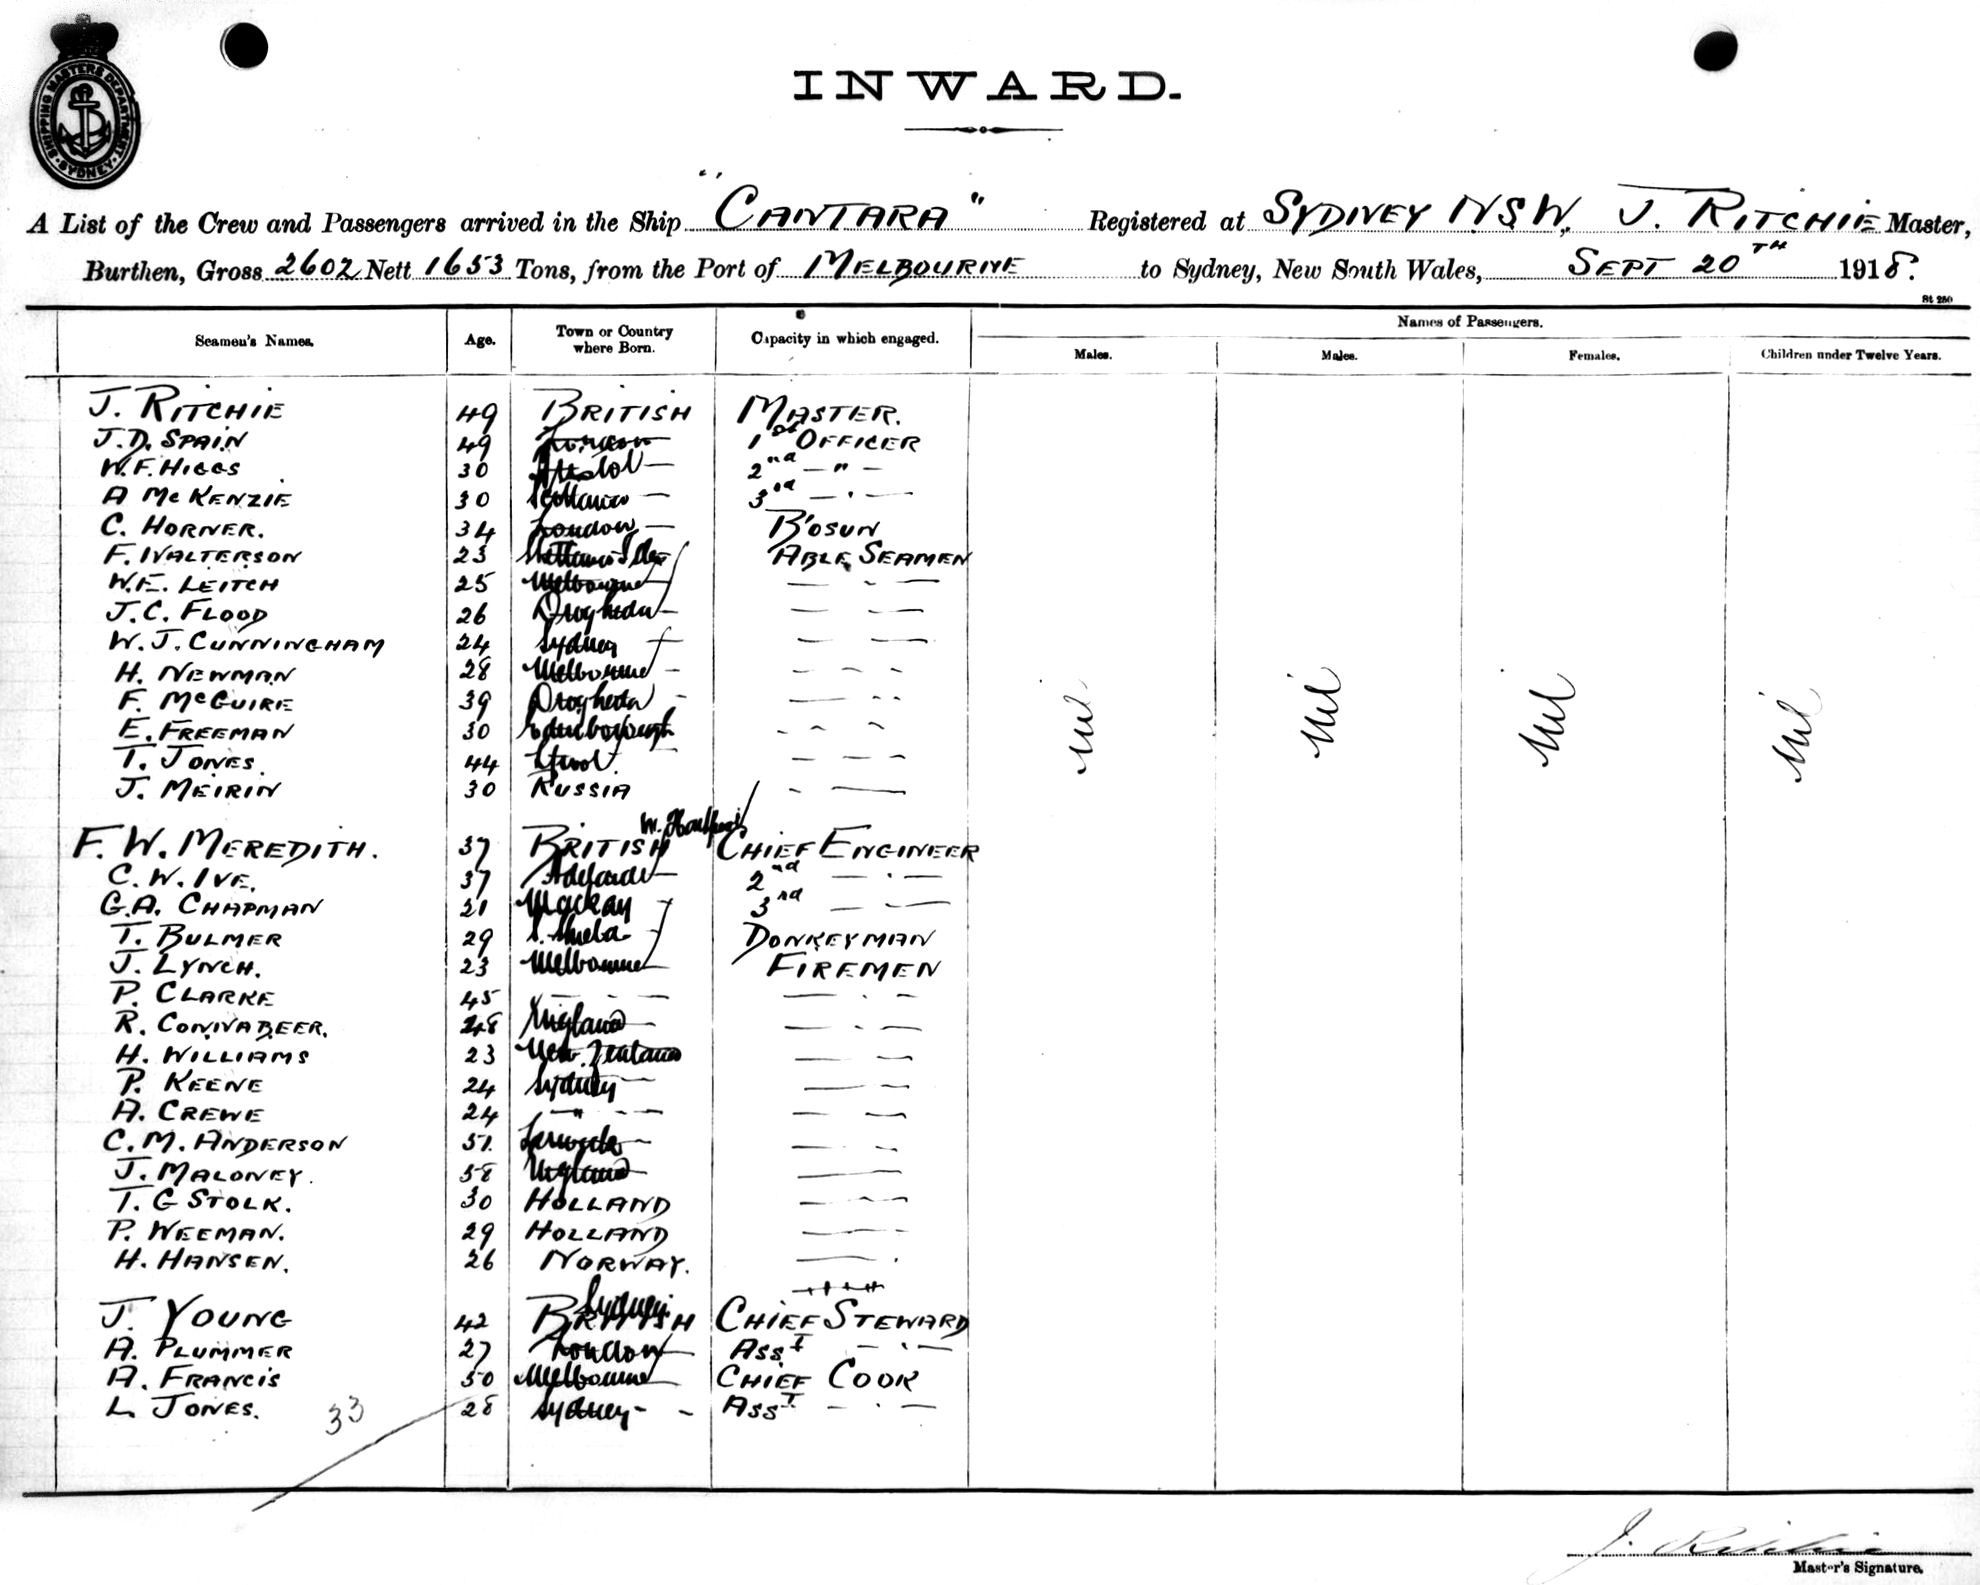 SHIPPING MASTERS DEPARTMENT
SYDNEY
INWARD.
A List of the Crew and Passengers arrived in the Ship "CANTARA" Registered at SYDNEY N.S.W., J. RITCHIE Master,
Burthen, Gross 2602 Nett 1653 Tons, from the Port of MELBOURNE to Sydney, New South Wales, SEPT 20TH 1918.
St 250
Seamen's Names. Age. Town or Country where Born. Capacity in which engaged. Names of Passengers.
Males. Males. Females. Children under Twelve Years.
J. RITCHIE 49 BRITISH MASTER.
J.D. SPAIN 49 London 1st OFFICER
W.F. HIGGS 30 Bristol — 2nd — " —
A McKENZIE 30 Scotland — 3rd — " —
C. HORNER. 34 London — B'OSUN
F. WALTERSON 23 ABLE SEAMEN
W.E. LEITCH 25 Melbourne
J.C. FLOOD 26 Drogheda —
W.J. CUNNINGHAM 24 Sydney
H. NEWMAN 28 Melbourne —
F. McGUIRE 39 Drogheda -
E. FREEMAN 30
T. JONES. 44
J. MEIRIN 30 RUSSIA
nil nil nil nil
F. W. MEREDITH. 37 BRITISH CHIEF ENGINEER
C.W. IVE. 37 Adelaide — 2nd — " —
G.A. CHAPMAN 21 Mackay 3rd — " —
T. BULMER 29 DONKEYMAN
J. LYNCH. 23 Melbourne FIREMEN
P. CLARKE 45 — — —
R. CONNABEER. 28 England —
H. WILLIAMS 23 New Zealand
P. KEENE 24 Sydney —
A. CREWE 24 — " — —
C.M. ANDERSON 51. Lerwick —
J. MALONEY. 58 England
T. G STOLK. 30 HOLLAND
P. WEEMAN. 29 HOLLAND
H. HANSEN. 26 NORWAY.
Sydney
J. YOUNG 42 BRITISH CHIEF STEWARD
A. PLUMMER 27 London ASST — " —
A. FRANCIS 50 Melbourne CHIEF COOK
L. JONES. 28 Sydney - - ASST — " —
33
J. Ritchie
Master's Signature.